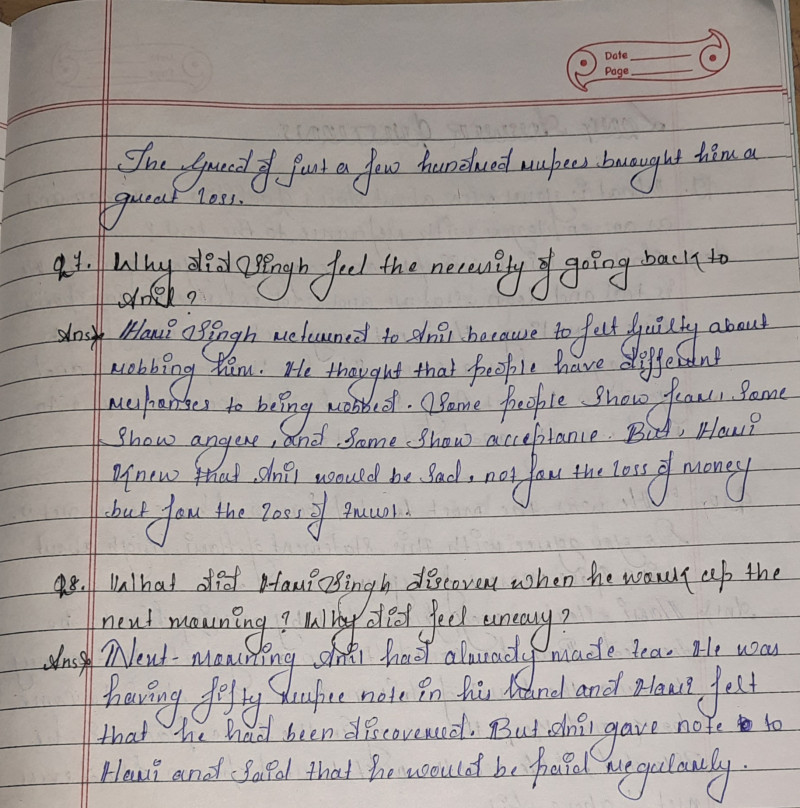 Date
Page
The Greed of just a few hundred rupees brought him a
great loss.
Q7. Why did Singh feel the necessity of going back to
Anil?
Ans> Hari Singh returned to Anil because to felt guilty about
robbing him. He thought that people have different
responses to being robbed. Some people show fear, some
show anger, and some show acceptance. But, Hari
knew that Anil would be sad, not for the loss of money
but for the loss of trust.
Q8. What did Hari Singh discover when he work up the
next morning? Why did feel uneasy?
Ans> Next-morning Anil had already made tea. He was
having fifty rupee note in his hand and Hari felt
that he had been discovered. But Anil gave note to
Hari and said that he would be paid regularly.